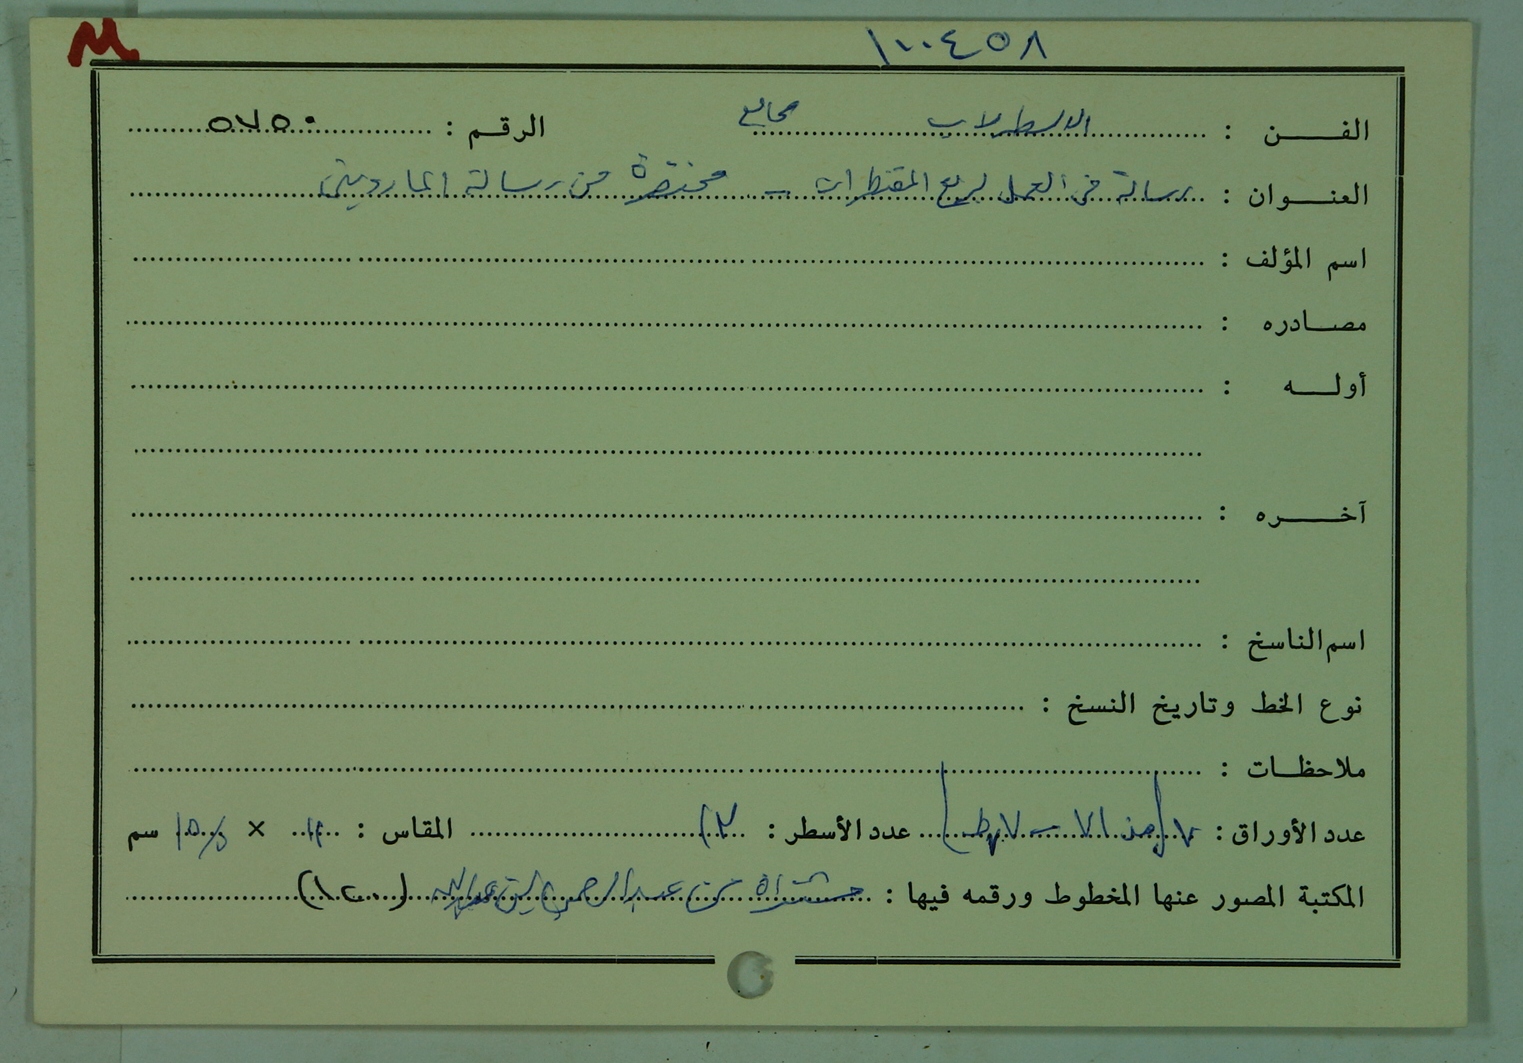 ١٠٠٤٥٨
الفن : الاسطرلاب مجاميع الرقم : ٥٧٥٠
العنوان : رسالة في العمل بربع المقنطرات - مختصرة من رسالة المارديني
اسم المؤلف :
مصادره :
أوله :
آخره :
اسم الناسخ :
نوع الخط وتاريخ النسخ :
ملاحظات :
عدد الأوراق : ٧ عدد الأسطر : المقاس : × سم
المكتبة المصور عنها المخطوط ورقمه فيها : مشتراة من عبد الرحمن (١٢٠٠)